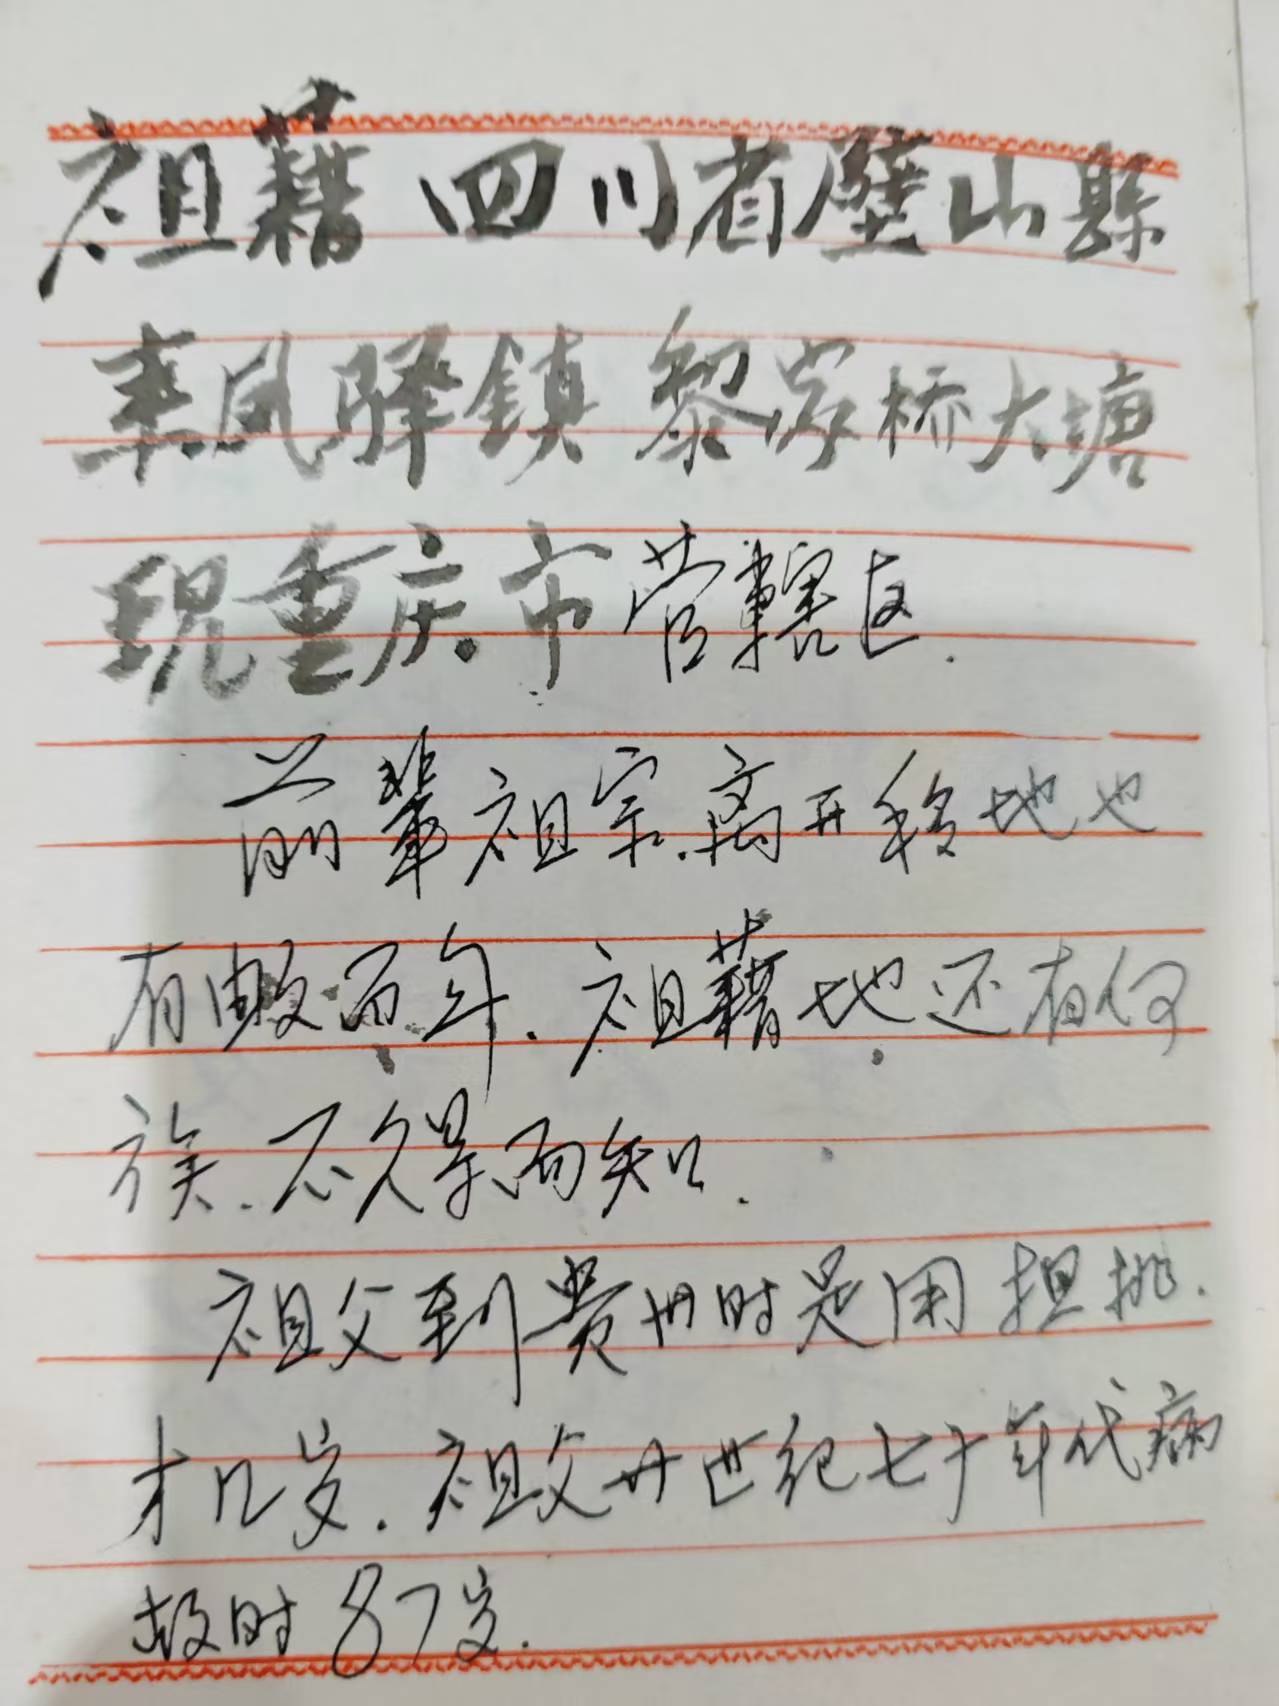 祖藉四川省壁山縣
来凤驿鎮黎家桥大塘
现重庆市管辖区.
前辈祖宗离开移地也
有数百年.祖藉地还有何
族.不得而知.
祖父到贵州时是用担挑.
才几岁.祖父廿世纪七十年代病
故时87岁.